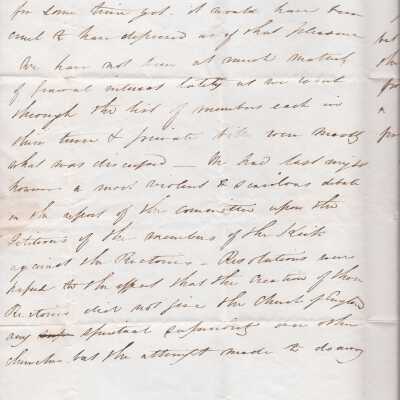 for some time yet. it would have been
cruel to have deprived us of that pleasure
We have not been at much matter
of general interest lately as we went
through the list of members each in
their turn & private bills were mostly
what was discussed — We had last night
however a most violent & scurilous debate
on the report of the committee upon the
Petitions of the members of the Kirk
against the Rectories - Resolutions were
passed to the effect that the creation of these
Rectories did not give the Church of England
any spiritual superiority over other
churches but the attempt made to do away
but
a